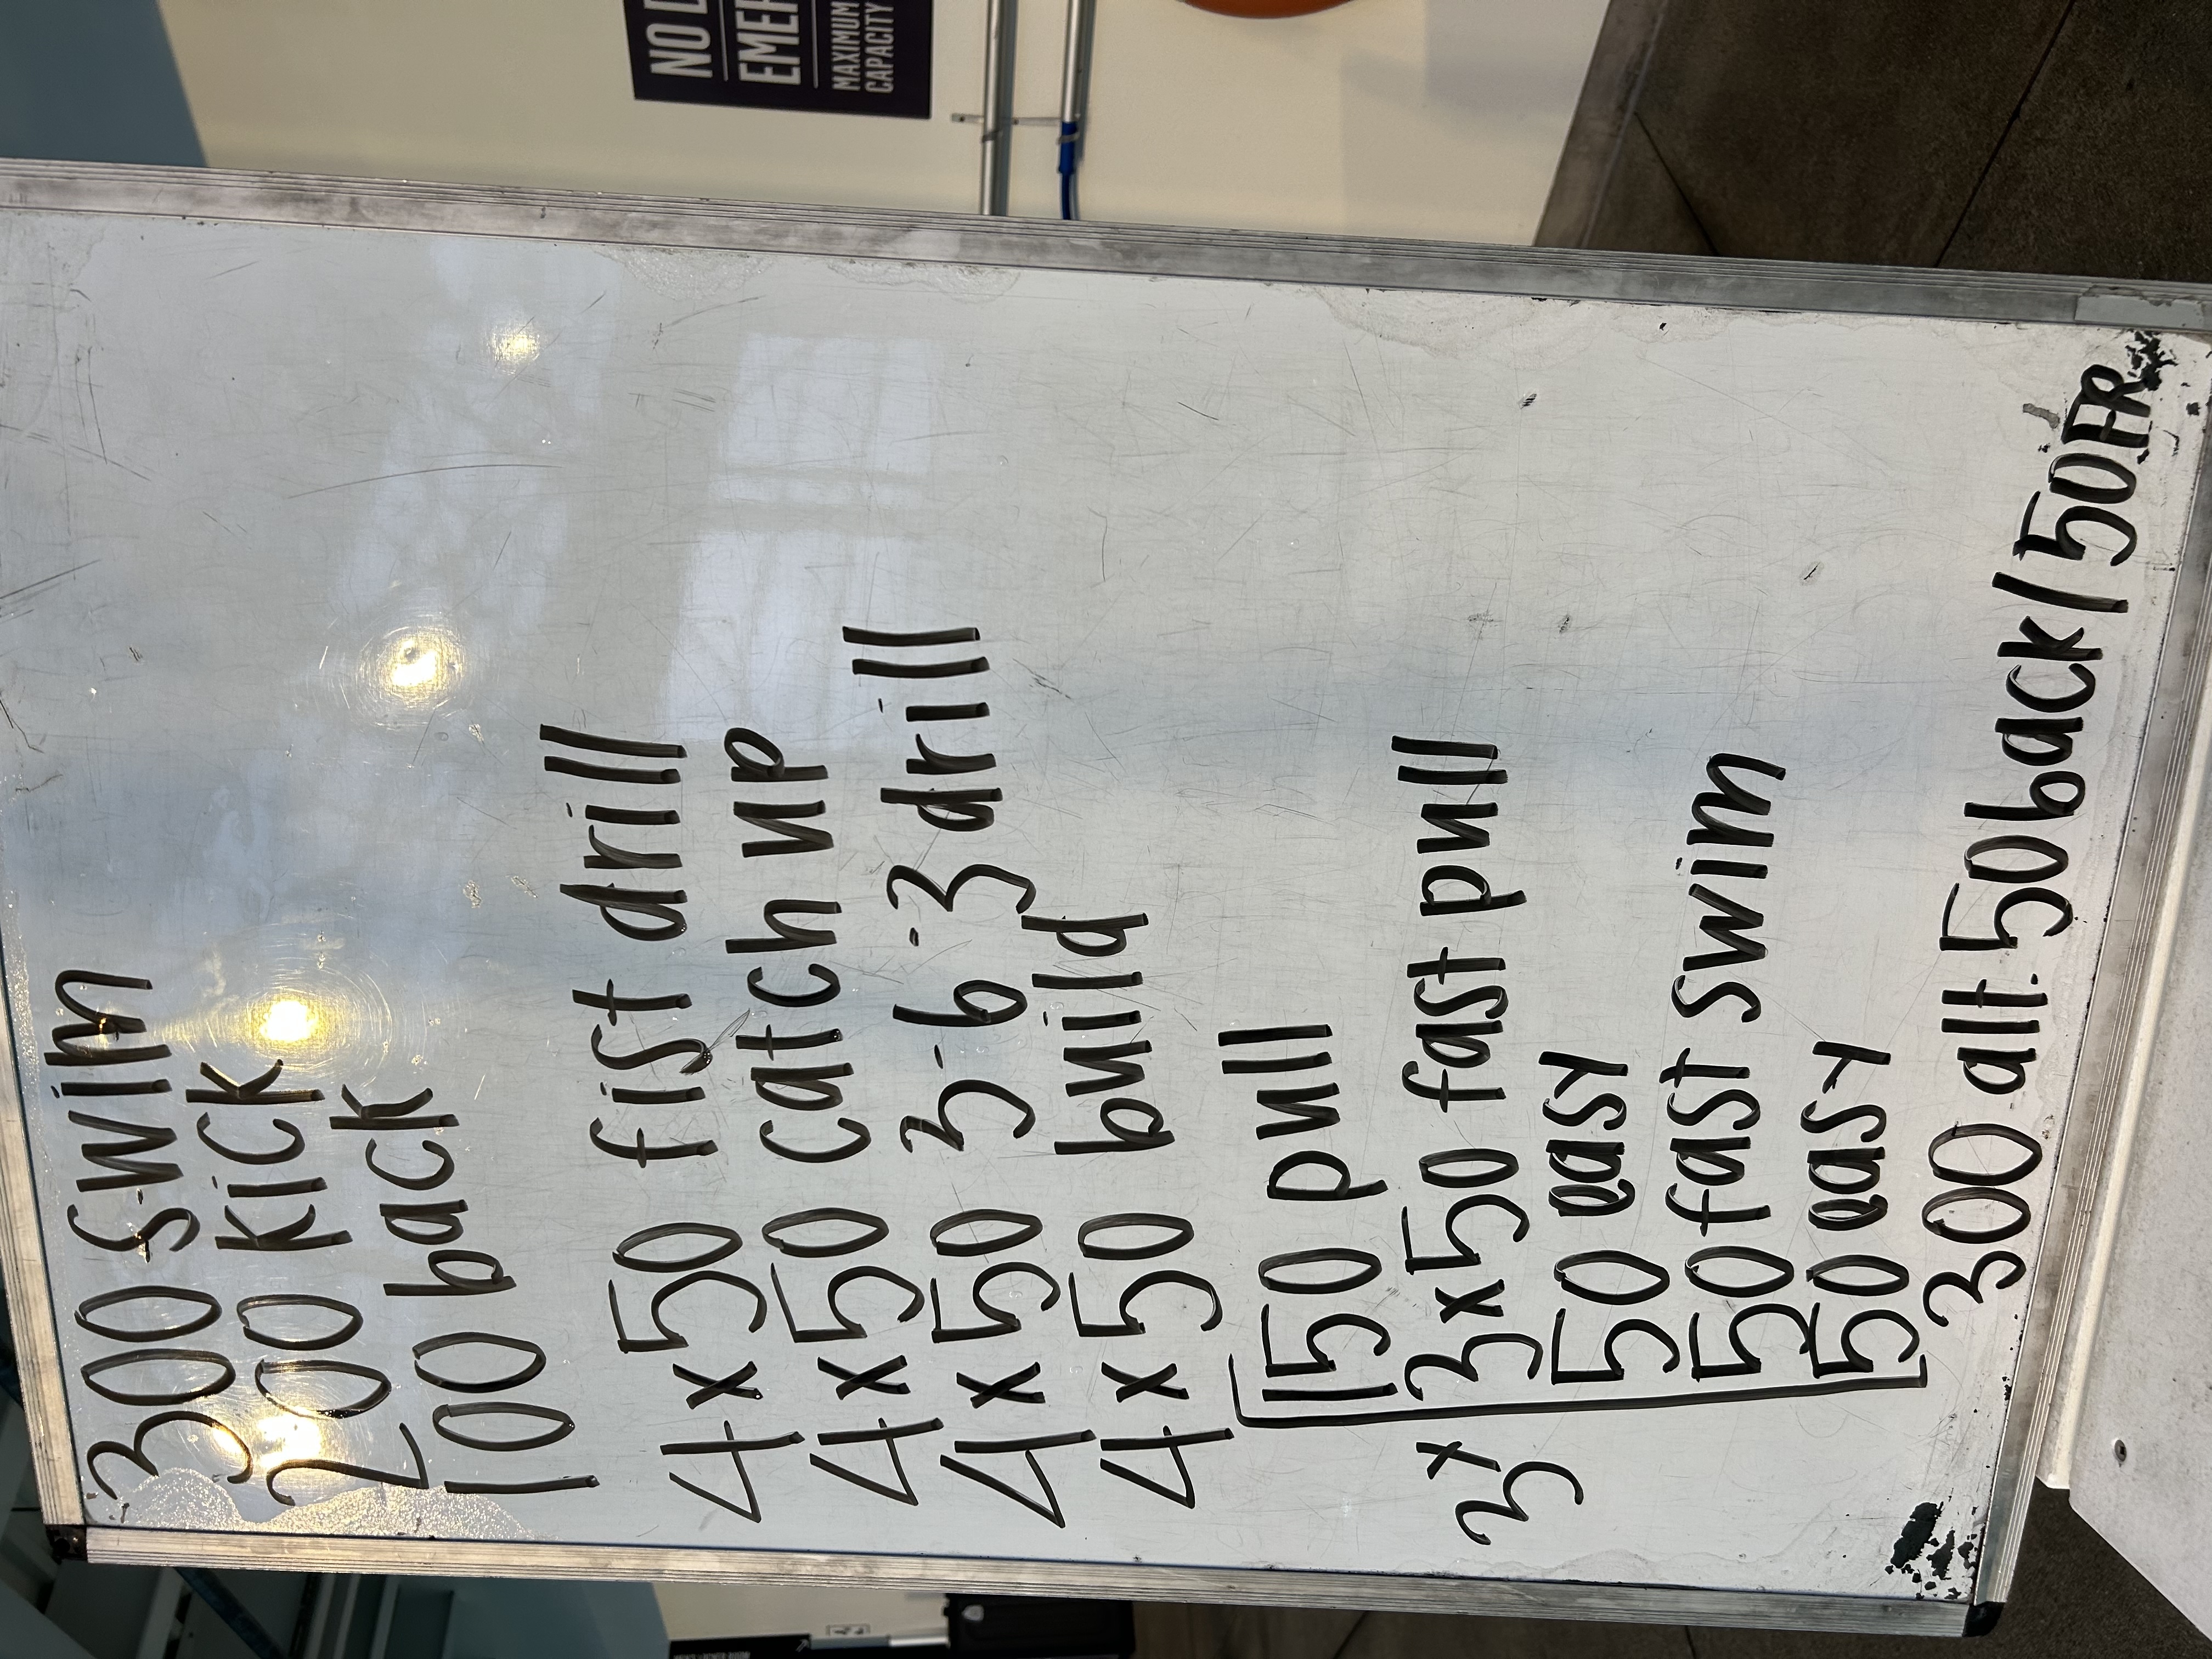 300 swim
200 kick
100 back
4x50 fist drill
4x50 catch up
4x50 3-6-3 drill
4x50 build
150 pull
3x 3x50 fast pull
50 easy
50 fast swim
50 easy
300 alt. 50back/50FR
NO
MAXIMUM
CAPACITY